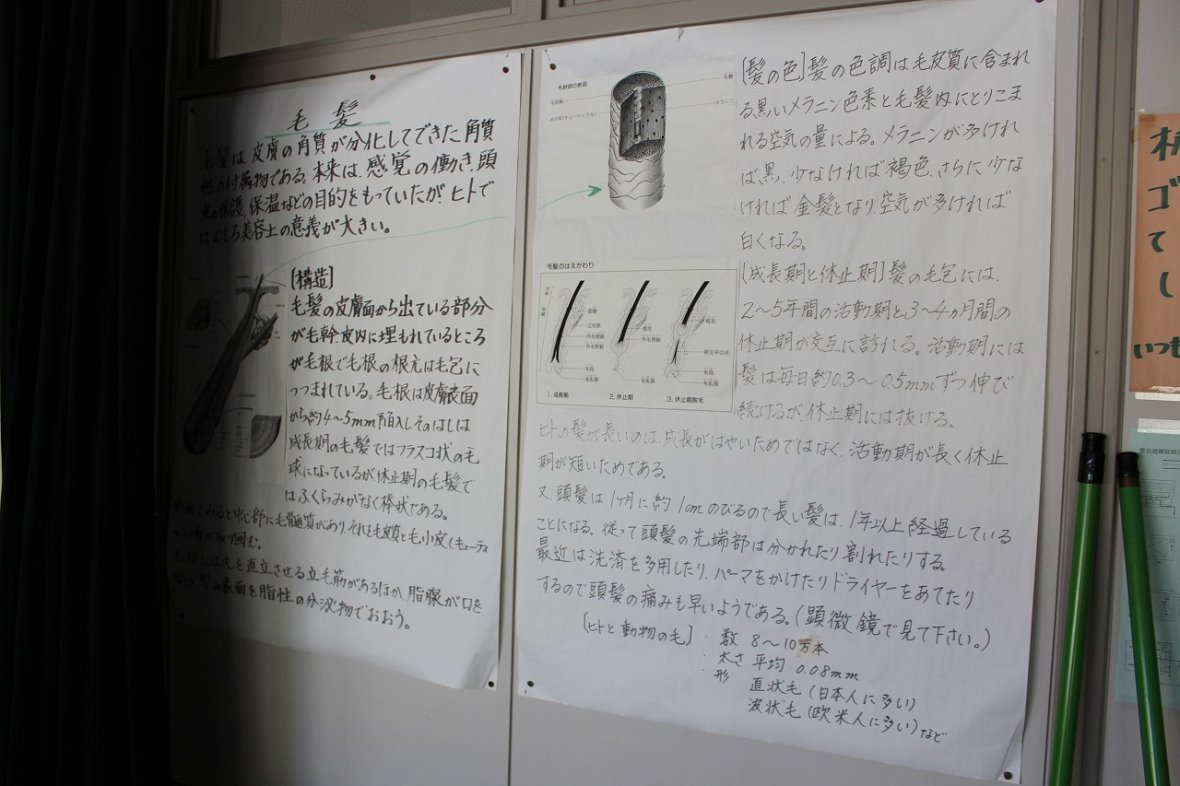 毛髪
毛髪は皮膚の角質が分化してできた角質
性の付属物である。本来は、感覚の働き、頭
皮の保護、保温などの目的をもっていたが、ヒトで
はむしろ美容上の意義が大きい。
[構造]
毛髪の皮膚面から出ている部分
が毛幹皮内に埋もれているところ
が毛根で毛根の根元は毛包に
つつまれている。毛根は皮膚表面
から約4～5mm陥入しそのはしは
成長期の毛髪ではフラスコ状の毛
球になっているが休止期の毛髪で
はふくらみがなく棒状である。
中心部に毛髄質があり、それと毛皮質と毛小皮(キューティ
が取り囲む。
毛を直立させる立毛筋があるほか、脂腺が口を
の表面を脂性の分泌物でおおう。
毛幹部の断面
毛髄
毛皮質
メラニン
毛小皮(キューティクル)
[髪の色]髪の色調は毛皮質に含まれ
る黒いメラニン色素と毛髪内にとりこま
れる空気の量による。メラニンが多けれ
ば黒、少なければ褐色、さらに少な
ければ金髪となり、空気が多ければ
白くなる。
毛髪のはえかわり
立毛筋
内毛根鞘
外毛根鞘
毛母
毛乳頭
新生中の毛
1. 成長期
2. 休止期
3. 休止期脱毛
[成長期と休止期]髪の毛包には、
2～5年間の活動期と3～4ヵ月間の
休止期が交互に訪れる。活動期には
髪は毎日約0.3～0.5mmずつ伸び
続けるが、休止期には抜ける。
ヒトの髪が長いのは、成長がはやいためではなく、活動期が長く休止
期が短いためである。
又、頭髪は1ヶ月に約1cmのびるので長い髪は、1年以上経過している
ことになる。従って頭髪の先端部は分かれたり割れたりする。
最近は洗済を多用したり、パーマをかけたりドライヤーをあてたり
するので頭髪の痛みも早いようである。(顕微鏡で見て下さい。)
[ヒトと動物の毛]
・数 8～10万本
・太さ 平均 0.08mm
・形 直状毛(日本人に多い)
波状毛(欧米人に多い)など
ゴ
て
し
いつも